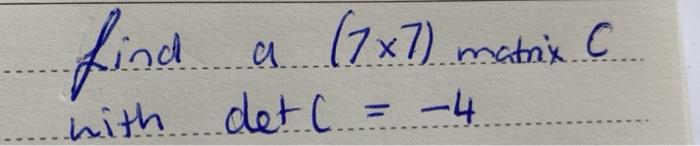 find a (7×7) matrix C
with det C = -4